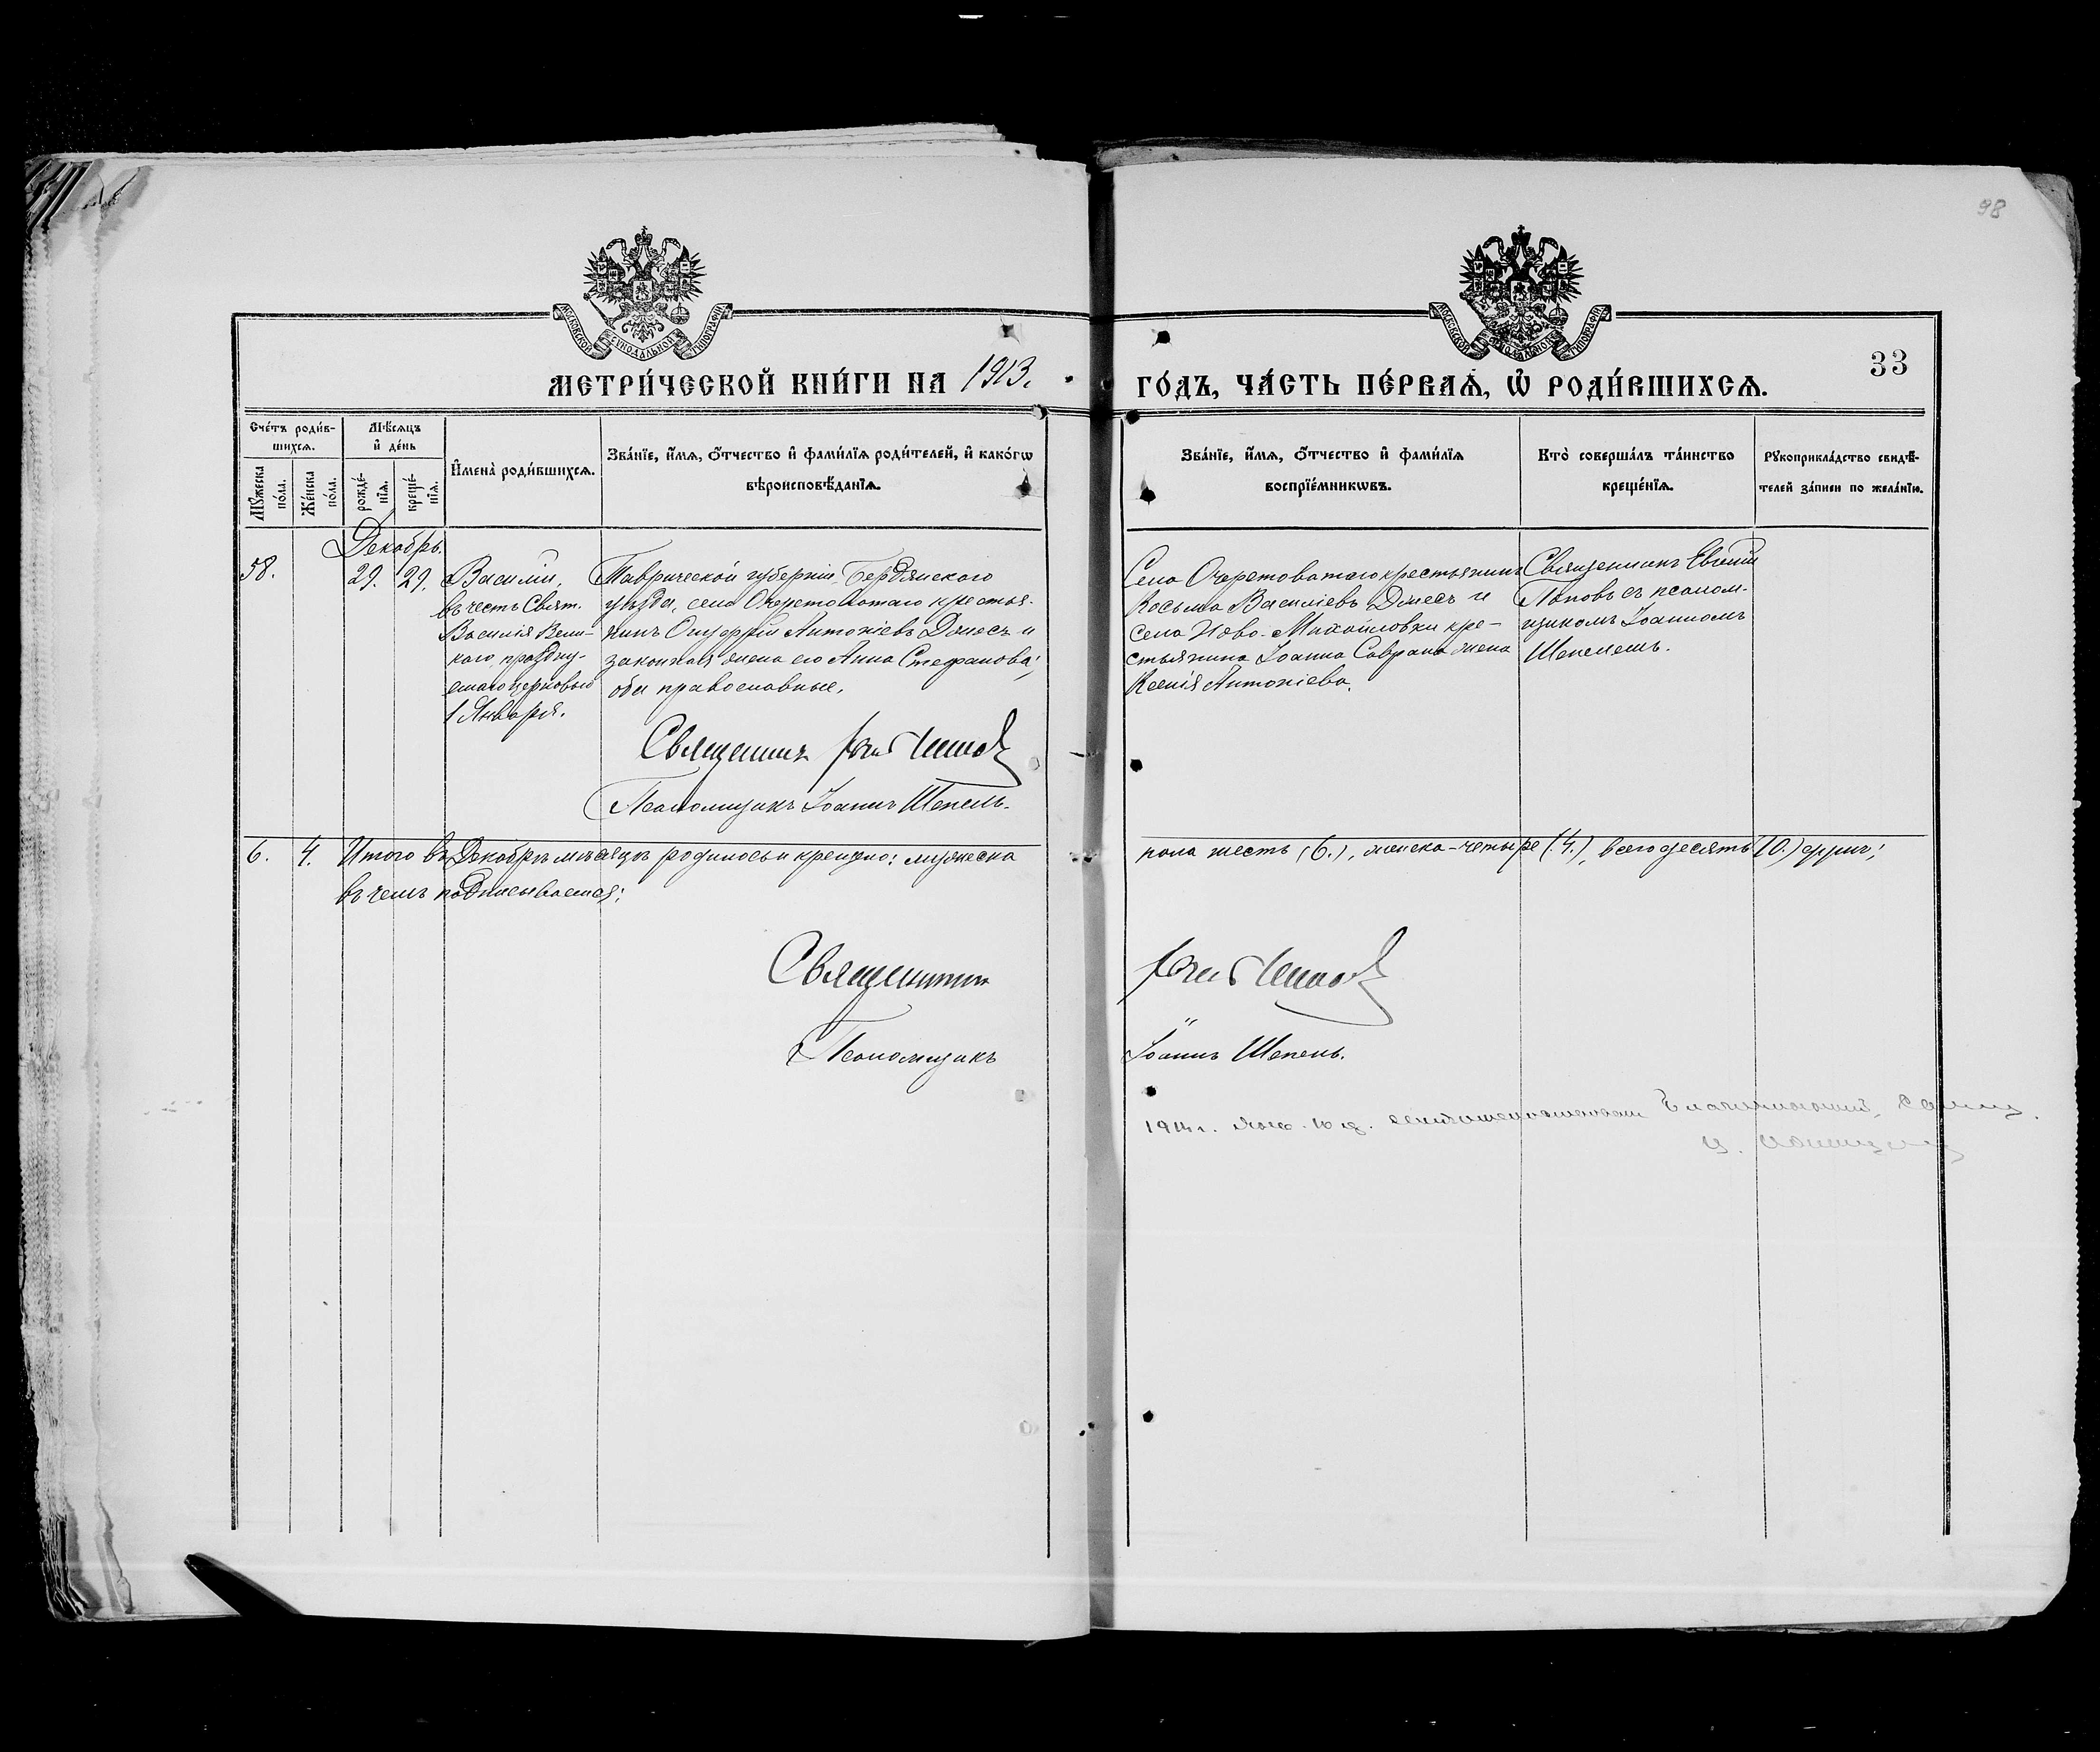 98
МОСКОВСКОЙ СѴНОДАЛЬНОЙ ТИПОГРАФІИ
МОСКОВСКОЙ СѴНОДАЛЬНОЙ ТИПОГРАФІИ
33
МЕТРИ́ЧЕСКОЙ КНИ́ГИ НА 1913.
ГО́ДЪ, ЧА́СТЬ ПЕ́РВАѦ, Ѡ҆ РОДИ́ВШИХСѦ.
Сче́тъ роди́в-
шихсѧ.
Мꙋ́жеска
по́ла.
Же́нска
по́ла.
Мѣ́сѧцъ
и҆ де́нь
рожде́-
нїѧ.
креще́-
нїѧ.
И҆мена̀ роди́вшихсѧ.
Зва́нїе, и҆́мѧ, ѻ҆́тчество и҆ фами́лїѧ роди́телей, и҆ како́гѡ
вѣроисповѣ́данїѧ.
Зва́нїе, и҆́мѧ, ѻ҆́тчество и҆ фами́лїѧ
воспрїе́мникѡвъ.
Кто̀ соверша́лъ та́инство
креще́нїѧ.
Рꙋкоприкла́дство свидѣ́-
телей за́писи по жела́нїю.
Декабрь.
58.
29.
29.
Василій,
въ честь Свят.
Василія Вели-
каго, праздну-
емаго церковью
1 Января.
Таврической губерніи, Бердянскаго
уѣзда, села Очеретоватаго крестья-
нинъ Онуфрій Антоніевъ и
законная жена его Анна Стефанова;
оба православные.
Священникъ
Псаломщикъ Іоаннъ Шепель.
Села Очеретоватаго крестьянинъ
Косьма Василіевъ и
села Ново-Михайловки кре-
стьянина Іоанна Саврана жена
Ксенія Антоніева.
Священникъ Евгеній
Поповъ съ псалом-
щикомъ Іоанномъ
Шепелемъ.
6. 4. Итого въ Декабрѣ мѣсяцѣ родилось и крещено: мужеска
пола шесть (6.), женска-четыре (4.), всего десять (10.) душъ;
въ чемъ подписываемся:
Священникъ
Псаломщикъ
Іоаннъ Шепель.
1914 г. Благочинный,